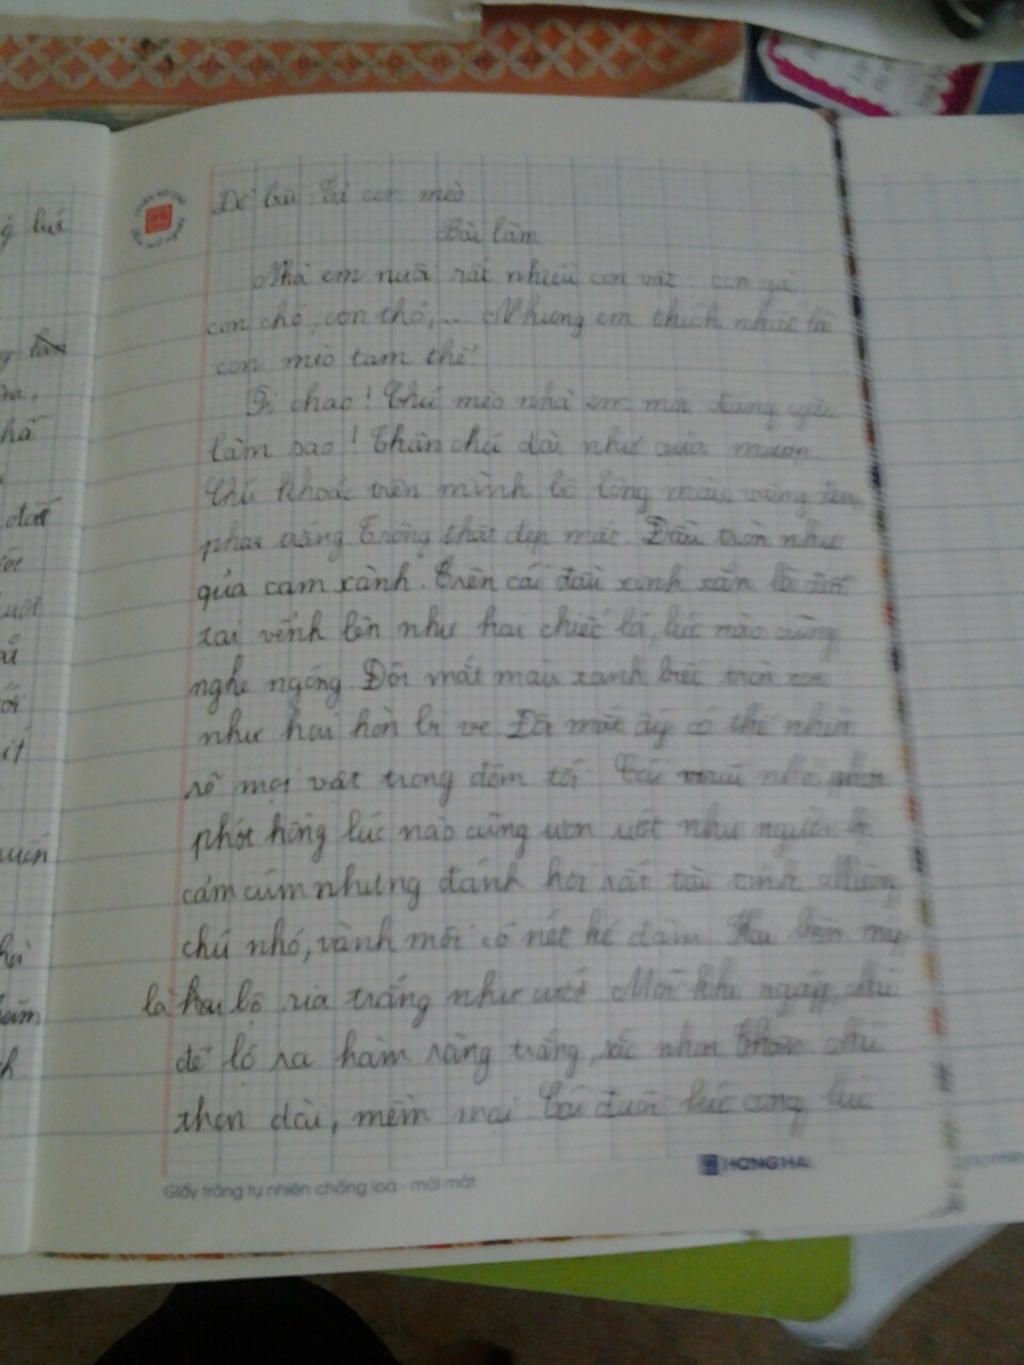 Đề bài: Tả con mèo
Bài làm
Nhà em nuôi rất nhiều con vật: con gà,
con chó, con thỏ,... Nhưng em thích nhất là
con mèo tam thể.
Ôi chao! Chú mèo nhà em mới đáng yêu
làm sao! Thân chú dài như quả mướp.
Chú khoác trên mình bộ lông màu vàng đen
pha trắng. Trông thật đẹp mắt. Đầu tròn như
qủa cam xành. Trên cái đầu xinh xắn là đôi
tai vểnh lên như hai chiếc lá, lúc nào cũng
nghe ngóng. Đôi mắt màu xanh biếc tròn xoe
như hai hòn bi ve. Đôi mắt ấy có thể nhìn
rõ mọi vật trong đêm tối. Cái mũi nhỏ
phớt hồng lúc nào cũng ươn ướt như người bị
cảm cúm nhưng đánh hơi rất tài tình. Miệng
chú nhỏ, vành môi có nét kẻ đậm. Hai bên mép
là hai bộ ria trắng như cước. Mỗi khi ngáp, chú
để lộ ra hàm răng trắng, sắc nhọn. Thân chú
thon dài, mềm mại. Cái đuôi lúc cong lúc
HONG HA
Giấy trắng tự nhiên chống loá - mỏi mắt
lưí
đất
uốn